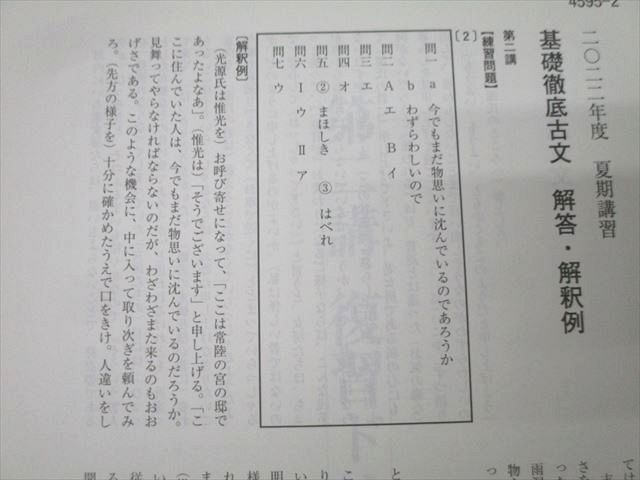 4595-2
二〇二二年度 夏期講習
基礎徹底古文 解答・解釈例
第二講
【練習問題】
〔2〕
問一 a 今でもまだ物思いに沈んでいるのであろうか
b わずらわしいので
問二 A エ B イ
問三 エ
問四 オ
問五 ② まほしき ③ はべれ
問六 Ⅰ ウ Ⅱ ア
問七 ウ
【解釈例】
(光源氏は惟光を)お呼び寄せになって、「ここは常陸の宮の邸で
あったよなあ」。(惟光は)「そうでございます」と申し上げる。「こ
こに住んでいた人は、今でもまだ物思いに沈んでいるのだろうか。
見舞ってやらなければならないのだが、わざわざまた来るのもおお
げさである。このような機会に、中に入って取り次ぎを頼んでみ
ろ。(先方の様子を)十分に確かめたうえで口をきけ。人違いをし